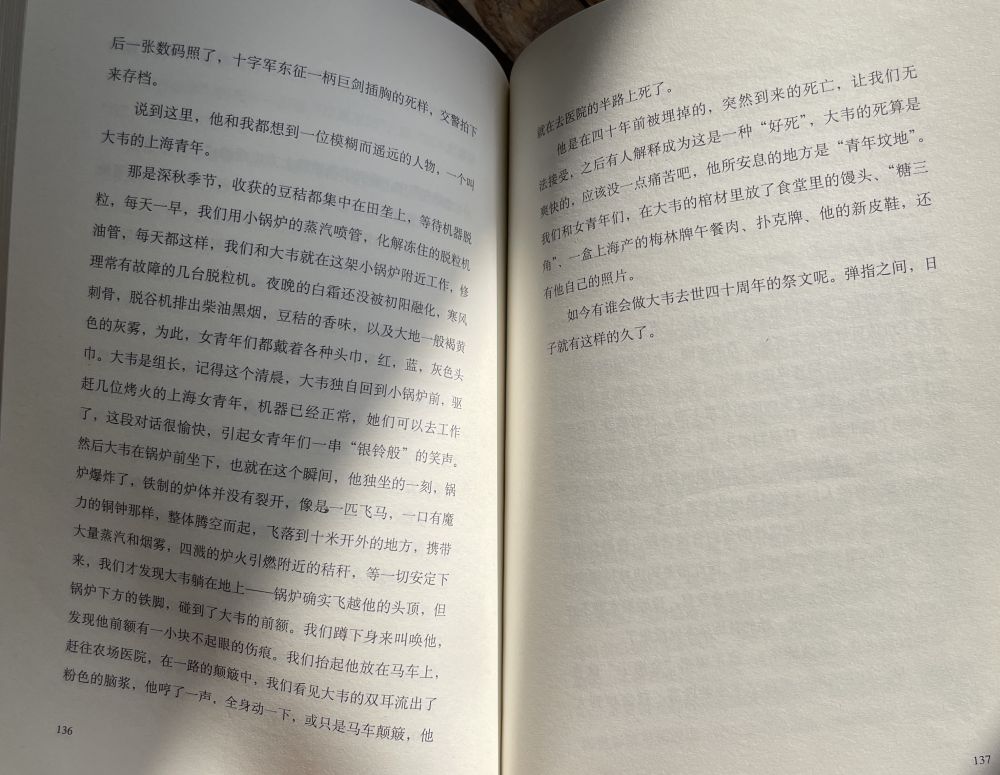 后一张数码照了，十字军东征一柄巨剑插胸的死样，交警拍下
来存档。
说到这里，他和我都想到一位模糊而遥远的人物，一个叫
大韦的上海青年。
那是深秋季节，收获的豆秸都集中在田垄上，等待机器脱
粒，每天一早，我们用小锅炉的蒸汽喷管，化解冻住的脱粒机
油管，每天都这样，我们和大韦就在这架小锅炉附近工作，修
理常有故障的几台脱粒机。夜晚的白霜还没被初阳融化，寒风
刺骨，脱谷机排出柴油黑烟，豆秸的香味，以及大地一般褐黄
色的灰雾，为此，女青年们都戴着各种头巾，红，蓝，灰色头
巾。大韦是组长，记得这个清晨，大韦独自回到小锅炉前，驱
赶几位烤火的上海女青年，机器已经正常，她们可以去工作
了，这段对话很愉快，引起女青年们一串“银铃般”的笑声。
然后大韦在锅炉前坐下，也就在这个瞬间，他独坐的一刻，锅
炉爆炸了，铁制的炉体并没有裂开，像是一匹飞马，一口有魔
力的铜钟那样，整体腾空而起，飞落到十米开外的地方，携带
大量蒸汽和烟雾，四溅的炉火引燃附近的秸秆，等一切安定下
来，我们才发现大韦躺在地上——锅炉确实飞越他的头顶，但
锅炉下方的铁脚，碰到了大韦的前额。我们蹲下身来叫唤他，
发现他前额有一小块不起眼的伤痕。我们抬起他放在马车上，
赶往农场医院，在一路的颠簸中，我们看见大韦的双耳流出了
粉色的脑浆，他哼了一声，全身动一下，或只是马车颠簸，他
136
就在去医院的半路上死了。
他是在四十年前被埋掉的，突然到来的死亡，让我们无
法接受，之后有人解释成为这是一种“好死”，大韦的死算是
爽快的，应该没一点痛苦吧，他所安息的地方是“青年坟地”。
我们和女青年们，在大韦的棺材里放了食堂里的馒头、“糖三
角”、一盒上海产的梅林牌午餐肉、扑克牌、他的新皮鞋，还
有他自己的照片。
如今有谁会做大韦去世四十周年的祭文呢。弹指之间，日
子就有这样的久了。
137